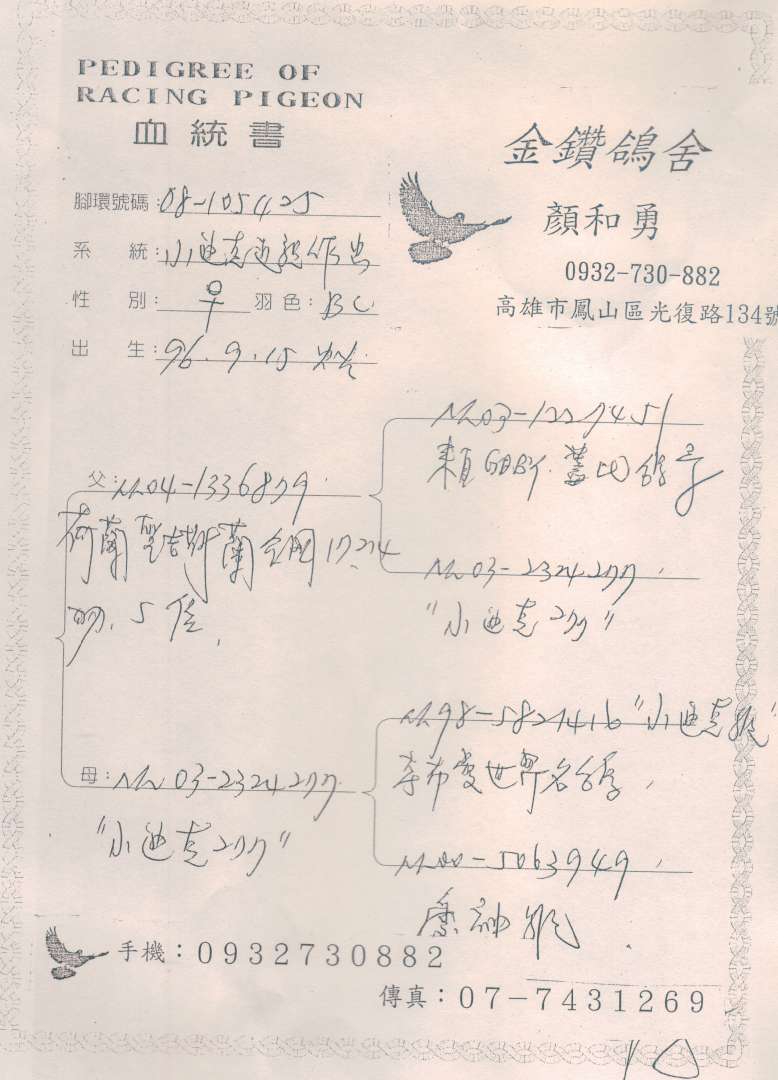 PEDIGREE OF
RACING PIGEON
血統書
金鑽鴿舍
顏和勇
0932-730-882
高雄市鳳山區光復路134號
腳環號碼：08-105425
系統：小迪克近親作出
性別：♀ 羽色：BC
出生：96.9.15
NL03-1227451
GABY.
父：NL04-1336879
荷蘭聖吉斯蘭全國17224
羽.5位
NL03-2324277
"小迪克277"
NL98-5821416"小迪克號"
世界名鴿
母：NL03-2324277
"小迪克277"
NL00-5063949
手機：0932730882
傳真：07-7431269